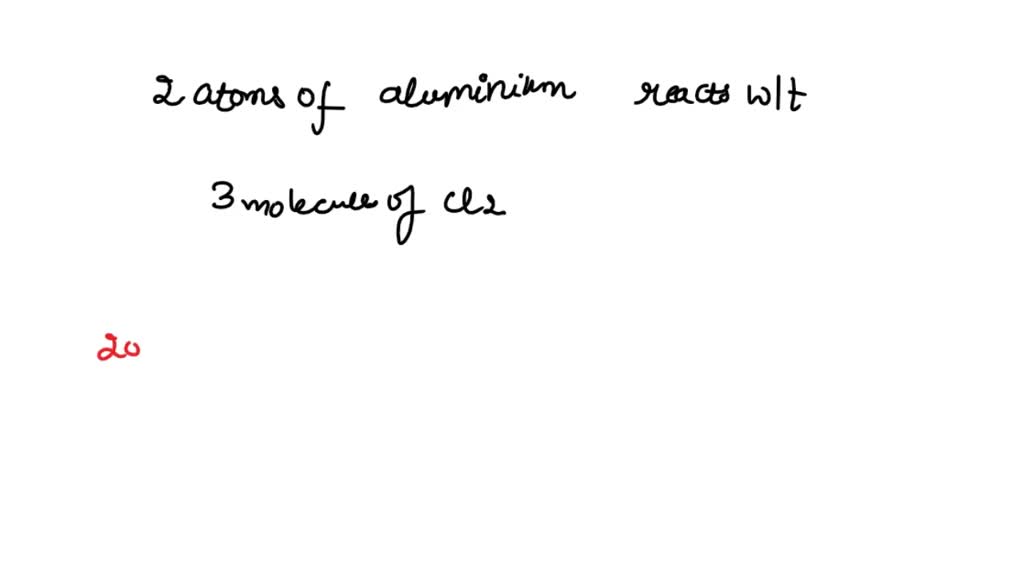 2 atoms of aluminium reacts w/t
3 molecule of Cl2
20